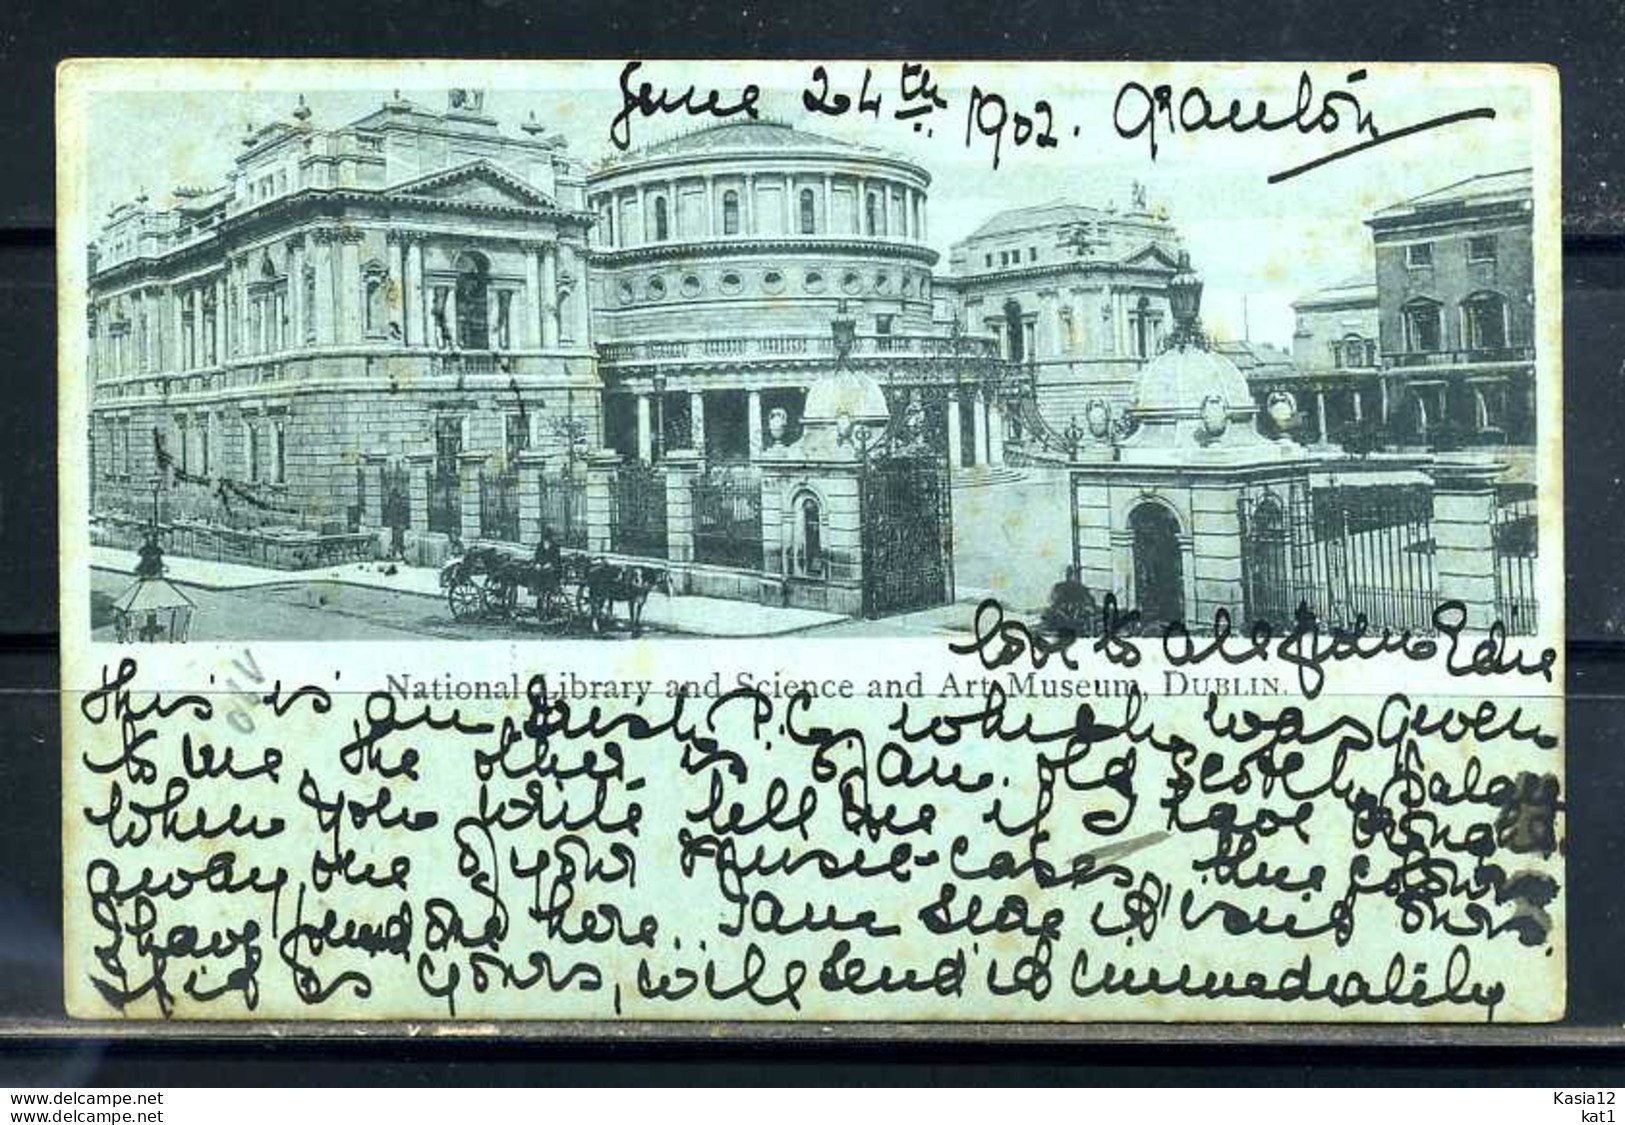 June 24th 1902. Granton
love to all from Edie
National Library and Science and Art Museum, DUBLIN.
This is an Irish P.C. which was given
to me, the other is of an old Scotch Palace
When you write tell me if I have brought
away one of your music-cases, the colour
I have found one here. I am sure it isn't ours.
If it is yours, will send it immediately
Kasia12
kat1